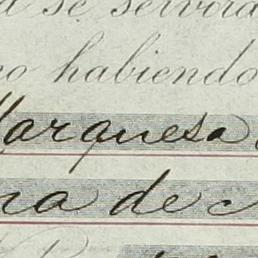 a se servirá
no habiendo
Marquesa
na de